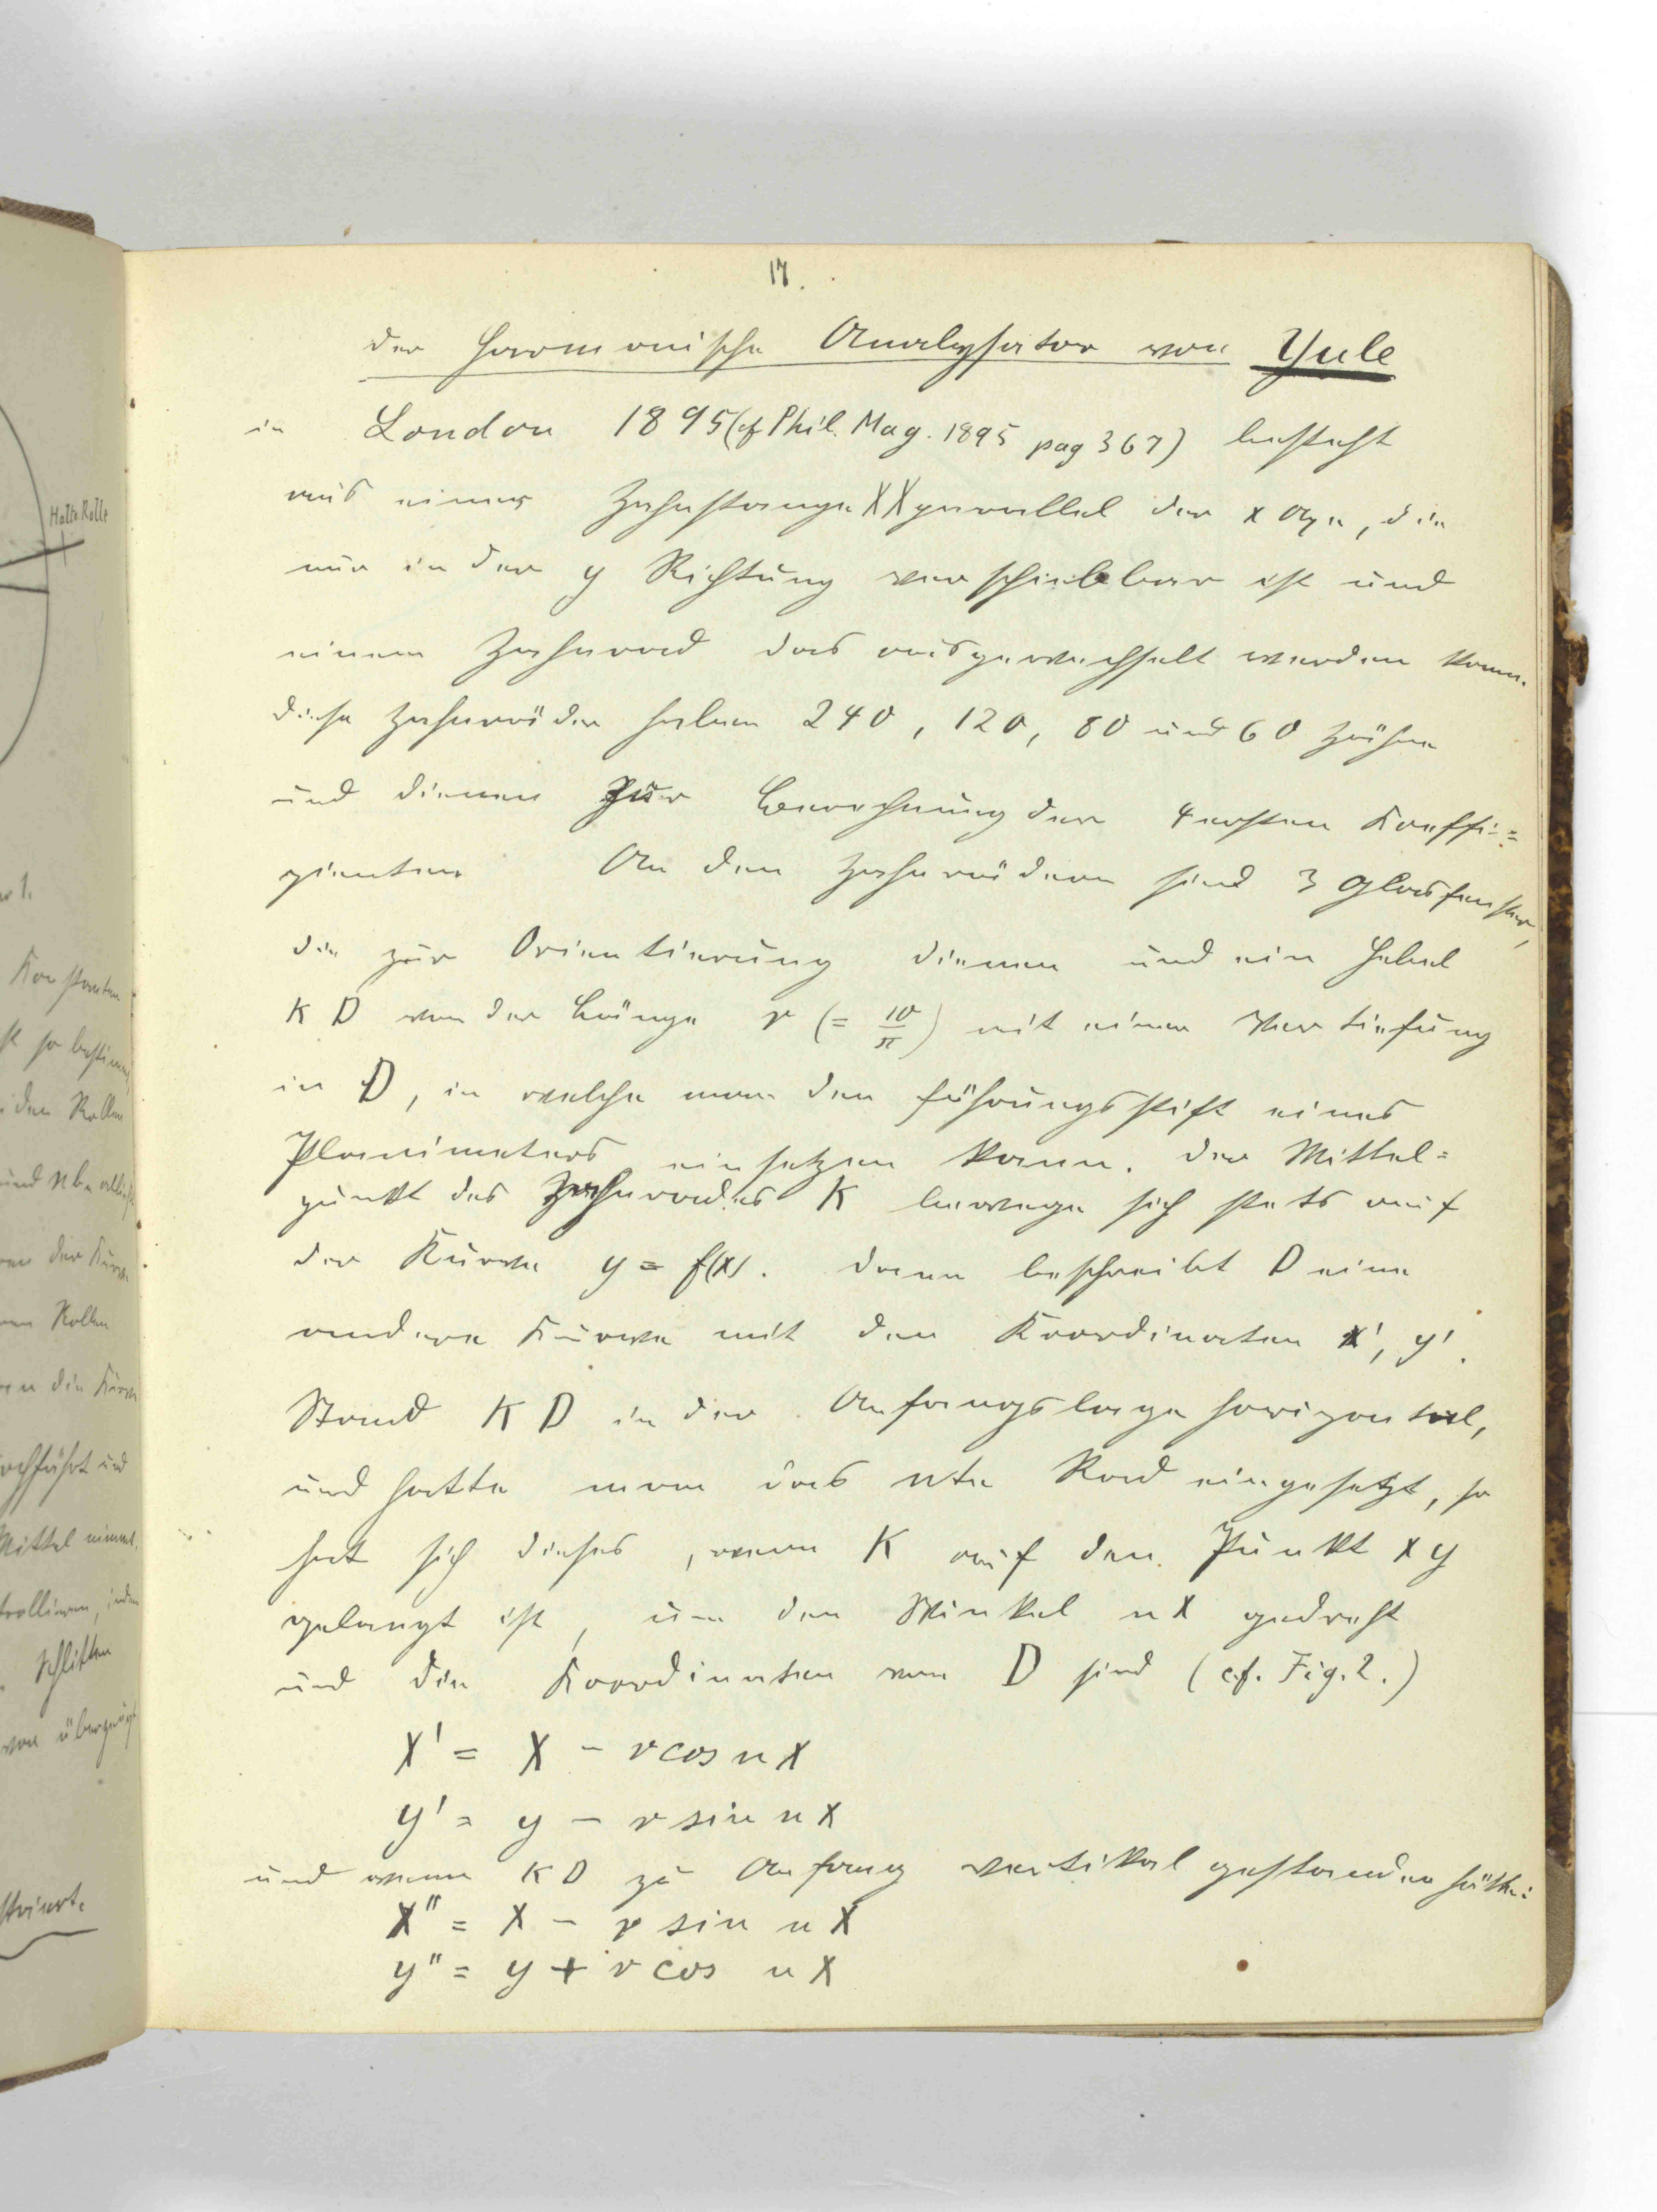 17.
der harmonische Analysator von Yule
in London 1895 (cf Phil. Mag. 1895 pag 367) besteht
aus einer Zahnstange XX parallel der x Axe, die
nur in der y Richtung verschiebbar ist und
einem Zahnrad das ausgewechselt werden kann.
diese Zahnräder haben 240, 120, 80 und 60 Zähne
und dienen zur Berechnung der 4 ersten Koeffi=
zienten. An den Zahnrädern sind 3 Glasfenster,
die zur Orientierung dienen und ein Hebel
K D von der Länge r (= 10/π) mit einer Vertiefung
in D, in welche man den Führungsstift eines
Planimeters einsetzen kann. Der Mittel=
punkt des Zahnrades K bewege sich stets auf
der Kurve y = f(x). dann beschreibt D eine
andere Kurve mit den Koordinaten x', y'.
Stand K D in der Anfangslage horizontal,
und hatte man das nte Rad eingesetzt, so
hat sich dieses, wenn K auf den Punkt x y
gelangt ist, um den Winkel n x gedreht
und die Koordinaten von D sind (cf. Fig. 2.)
x' = x - r cos n x
y' = y - r sin n x
und wenn K D zu Anfang vertikal gestanden hätte:
x" = x - r sin n x
y" = y + r cos n x
Halte Rolle
Konstanten
den Rollen
der Kurve
Rollen
die Kurve
und
Mittel nimmt.
Schlitten